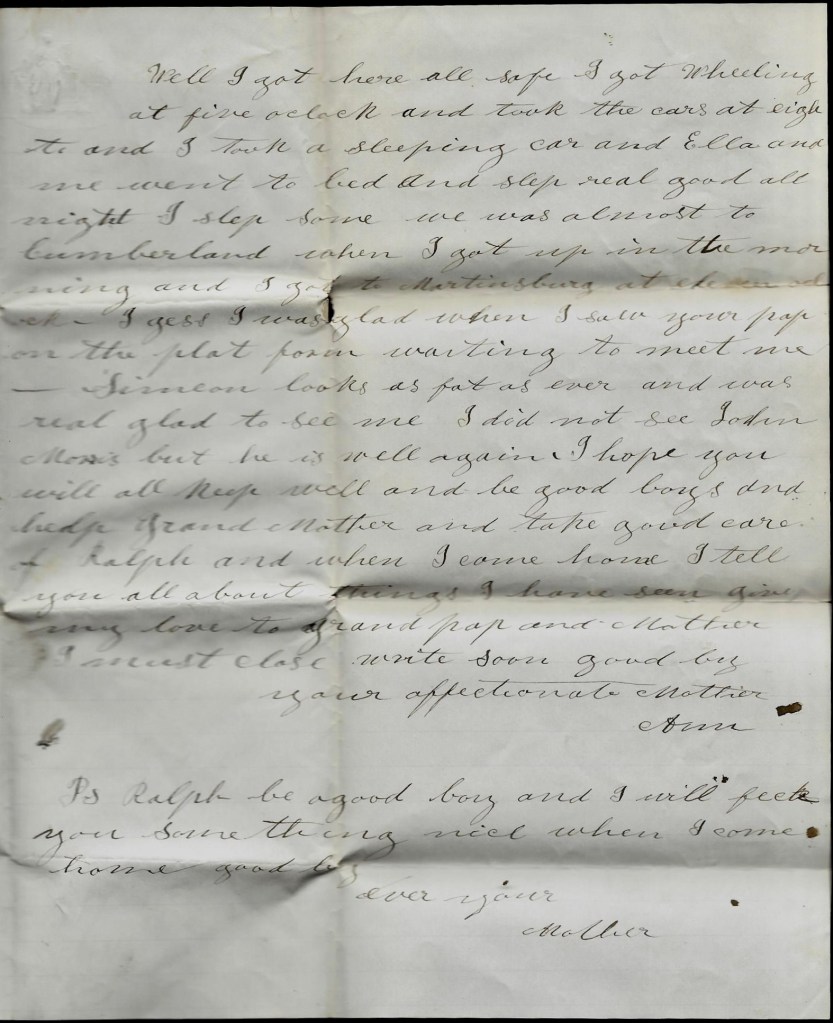 Well I got here all safe I got Wheeling
at five oclock and took the cars at eigh
te and I took a sleeping car and Ella and
me went to bed and slep real good all
night I slep some we was almost to
Cumberland when I got up in the mor
ning and I got to Martinsburg at eleven ocl
ock - I gess I was glad when I saw your pap
on the plat form waiting to meet me
— Simeon looks as fat as ever and was
real glad to see me I did not see John
Morris but he is well again I hope you
will all keep well and be good boys and
help Grand Mother and take good care
of Ralph and when I come home I tell
you all about things I have seen give
my love to grand pap and Mother
I must close write soon good by
your affectionate Mother
Ann
Ps Ralph be a good boy and I will fectk
you some thing nice when I come
home good by
ever your
Mother